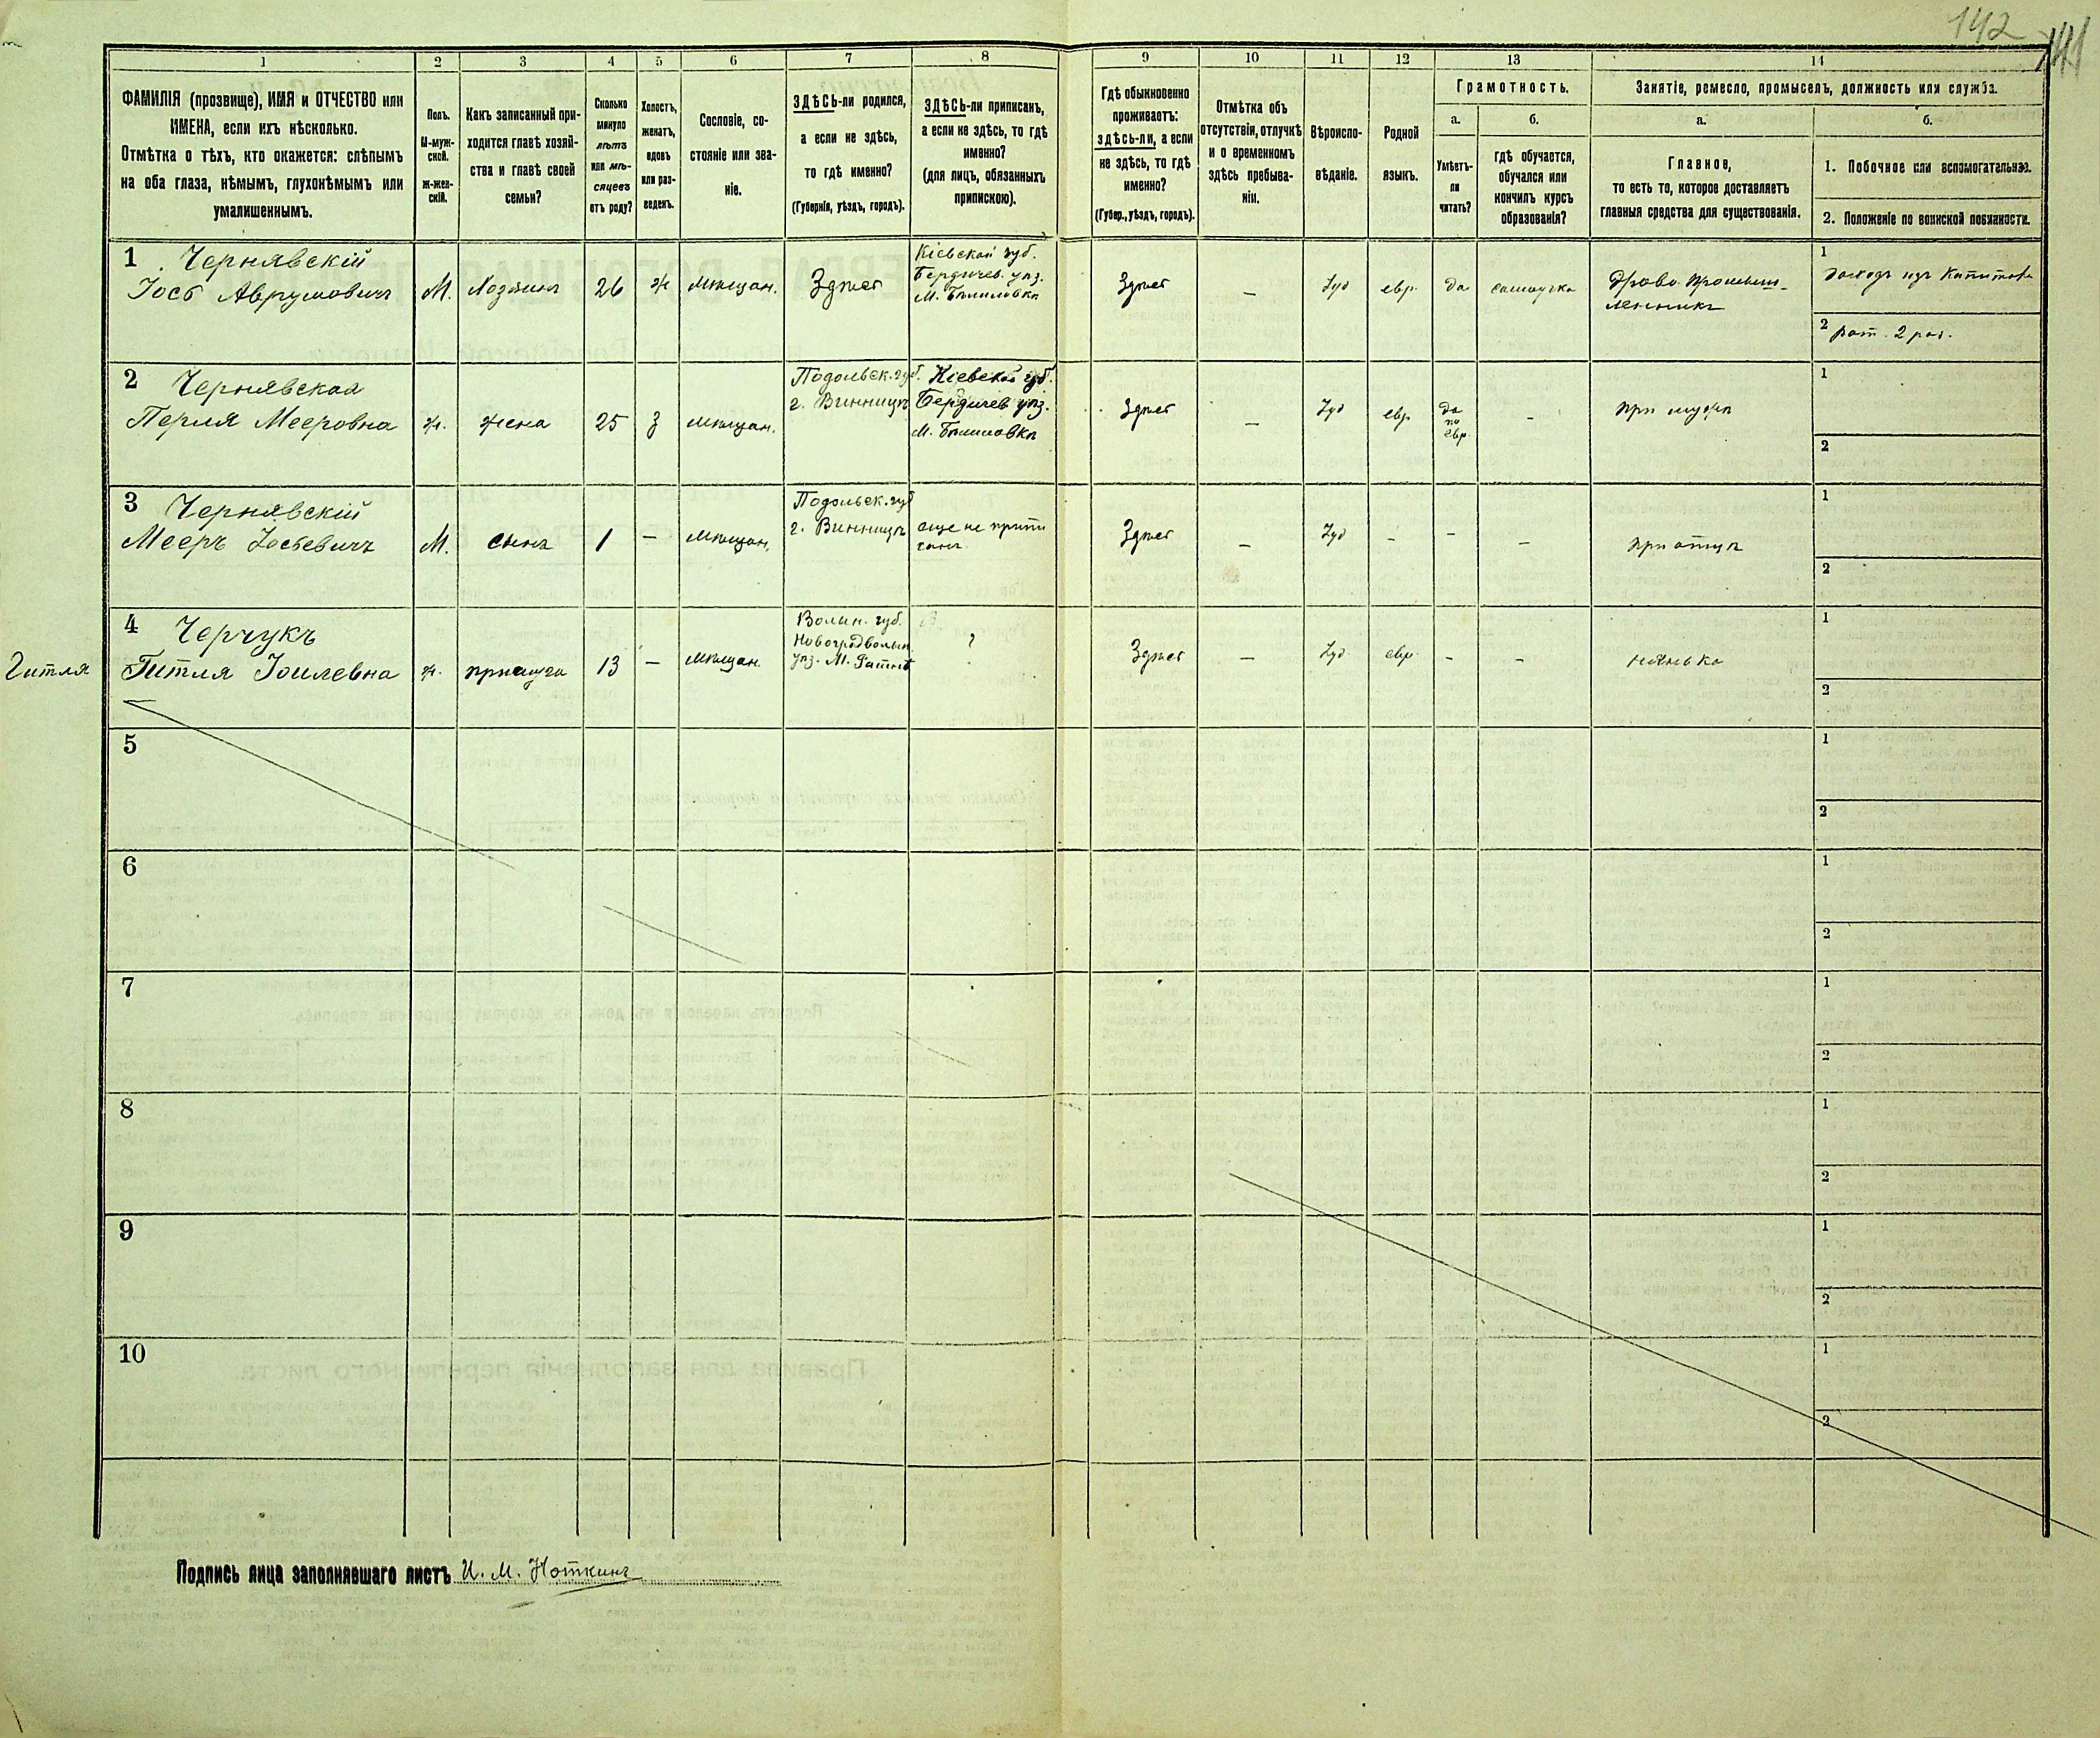 142
141
1
2
3
4
5
6
7
8
9
10
11
12
13
14
ФАМИЛІЯ (прозвище), ИМЯ и ОТЧЕСТВО или
ИМЕНА, если ихъ нѣсколько.
Отмѣтка о тѣхъ, кто окажется: слѣпымъ
на оба глаза, нѣмымъ, глухонѣмымъ или
умалишеннымъ.
Полъ.
М-муж-
ской.
Ж-жен-
скій.
Какъ записанный при-
ходится главѣ хозяй-
ства и главѣ своей
семьи?
Сколько
минуло
лѣтъ
или мѣ-
сяцевъ
отъ роду?
Холостъ,
женатъ,
вдовъ
или раз-
веденъ.
Сословіе, со-
стояніе или зва-
ніе.
ЗДѢСЬ-ли родился,
а если не здѣсь,
то гдѣ именно?
(Губернія, уѣздъ, городъ).
ЗДѢСЬ-ли приписанъ,
а если не здѣсь, то гдѣ
именно?
(для лицъ, обязанныхъ
припискою).
Гдѣ обыкновенно
проживаетъ:
здѣсь-ли, а если
не здѣсь, то гдѣ
именно?
(Губер., уѣздъ, городъ).
Отмѣтка объ
отсутствіи, отлучкѣ
и о временномъ
здѣсь пребыва-
ніи.
Вѣроиспо-
вѣданіе.
Родной
языкъ.
Грамотность.
а.
Умѣетъ-
ли
читать?
б.
гдѣ обучается,
обучался или
кончилъ курсъ
образованія?
Занятіе, ремесло, промыселъ, должность или служба.
а.
Главное,
то есть то, которое доставляетъ
главныя средства для существованія.
б.
1. Побочное или вспомогательное.
2. Положеніе по воинской повинности.
1 Чернявскій
Іосб Аврумовичъ
М.
Хозяинъ
26
ж
мѣщан.
Здѣсь
Кіевской губ.
Бердичев. уѣз.
М.
Здѣсь
—
Іуд
евр.
да
самоучка
Драво-промыш-
ленникъ
1
доходъ изъ
2 рат. 2 раз.
2 Чернявская
Перля Мееровна
ж.
жена
25
З
мѣщан.
Подольск. губ.
г. Винница
Кіевской губ.
Бердичев уѣз.
М.
Здѣсь
—
Іуд
евр.
да
по
евр.
-
при мужѣ
1
2
3 Чернявскій
Мееръ Іосьевичъ
М.
сынъ
1
—
мѣщан.
Подольск. губ
г. Винница
еще не припи
санъ
Здѣсь
—
Іуд
-
-
-
при отцѣ
1
2
Гитля
4 Черчукъ
Гитля Іоилевна
ж.
прислуга
13
—
мѣщан.
Волын. губ.
Новоградволын.
уѣз. М.
?
Здѣсь
—
Іуд
евр.
-
-
нянька
1
2
5
1
2
6
1
2
7
1
2
8
1
2
9
1
2
10
1
2
Подпись лица заполнявшаго листъ И. М. Ноткинъ